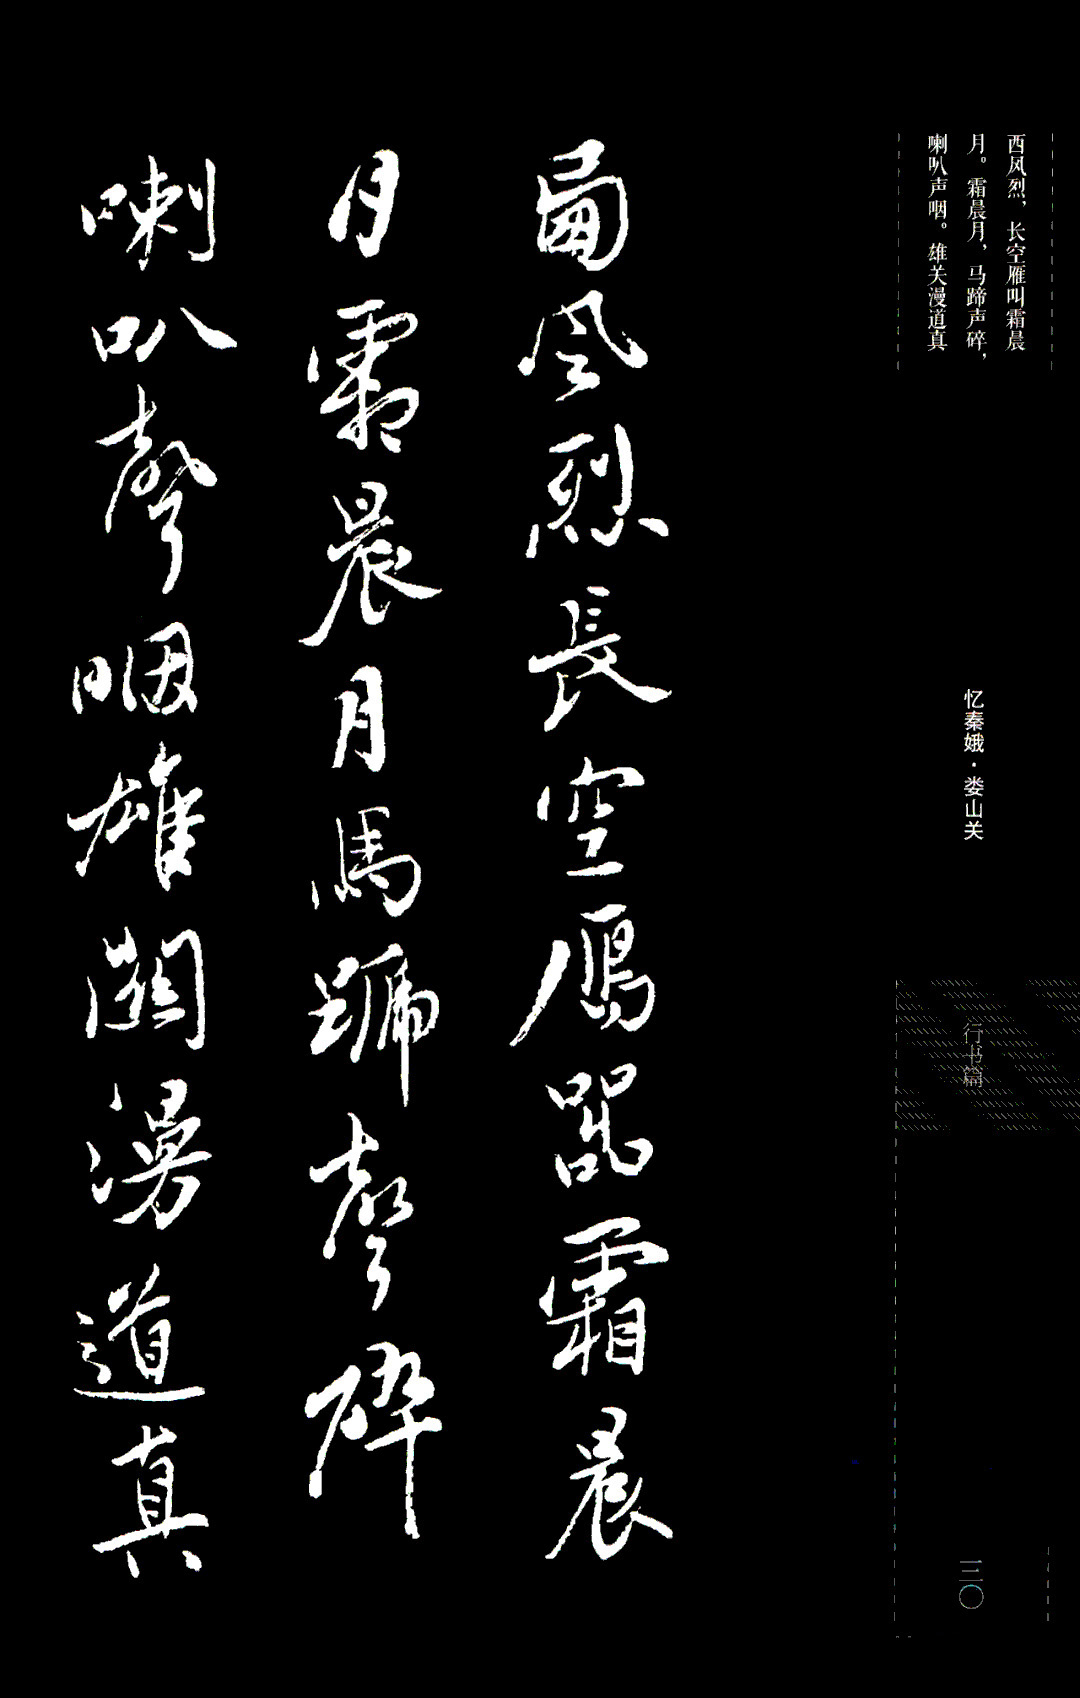 西风烈，长空雁叫霜晨
月。霜晨月，马蹄声碎，
喇叭声咽。雄关漫道真
忆秦娥·娄山关
行书篇
三〇
西風烈長空鴈叫霜晨
月霜晨月馬蹄聲碎
喇叭聲咽雄關漫道真